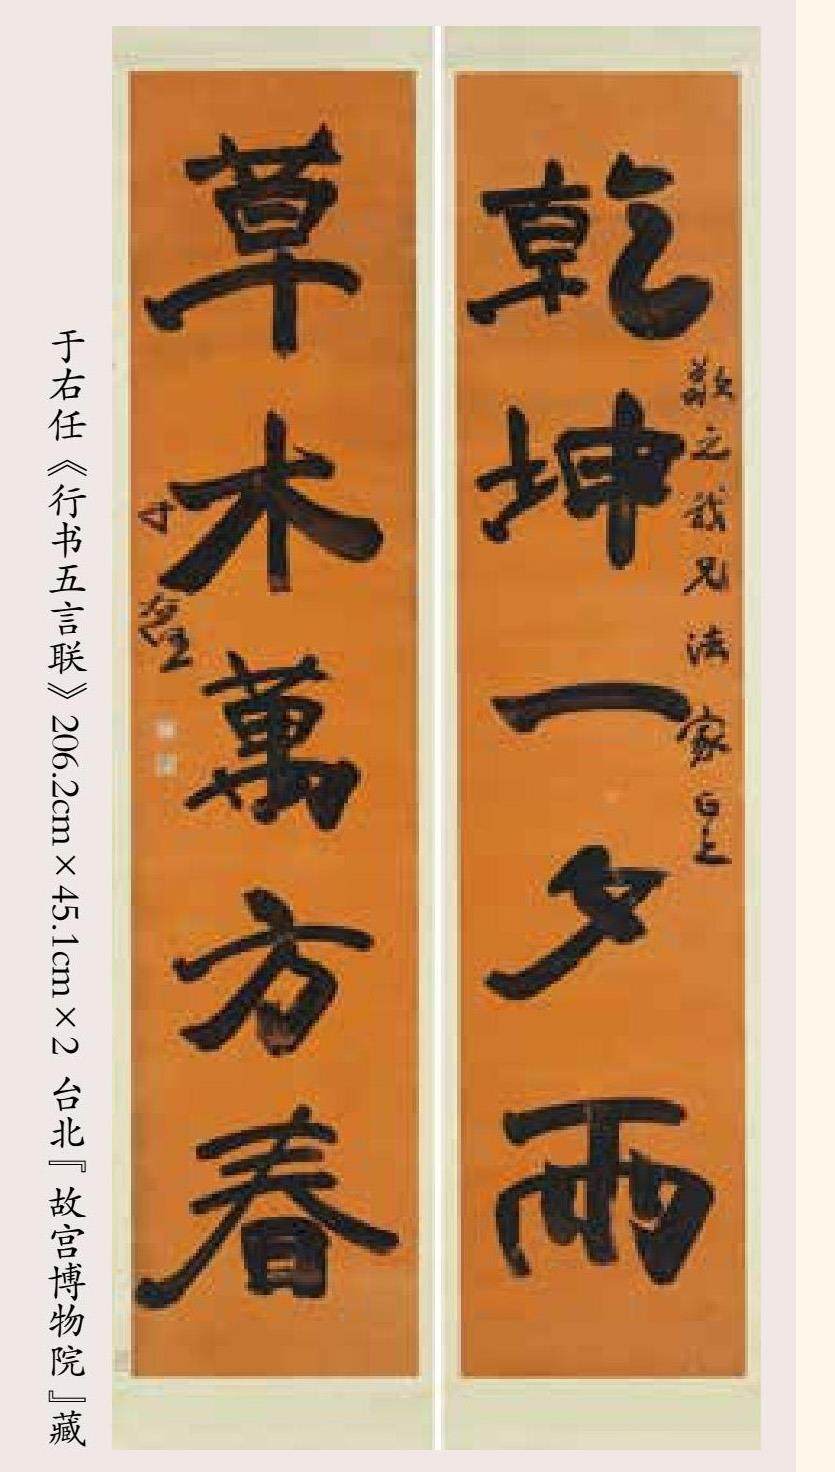 乾坤一夕雨
敬之我兄法家正之
草木萬方春
于右任
于右任《行书五言联》206.2cm×45.1cm×2 台北『故宫博物院』藏